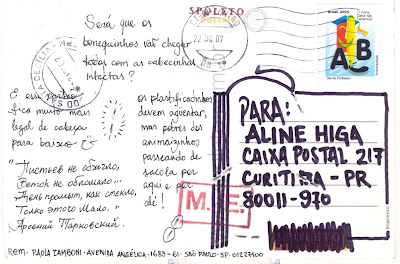 SPOLETO
Será que os
bonequinhos vão chegar
todos com as cabecinhas
intactas?
22 06 07
Brasil 2005
AB
E esse
fica muito mais
legal de cabeça
para baixo
os plastificadinhos
devem aguentar,
mas pobres dos
animaizinhos
passeando de
sacola por
aqui e por
ali!
"Листьев не обожгло,
Веток не обломало...
День промыт, как стекло,
Только этого мало."
Арсений Тарковский.
M.E.
PARA:
ALINE HIGA
CAIXA POSTAL 217
CURITIBA - PR
80011-970
REM: PAOLA ZAMBONI - AVENIDA ANGÉLICA - 1683 - 61 - SÃO PAULO - SP - 01227400